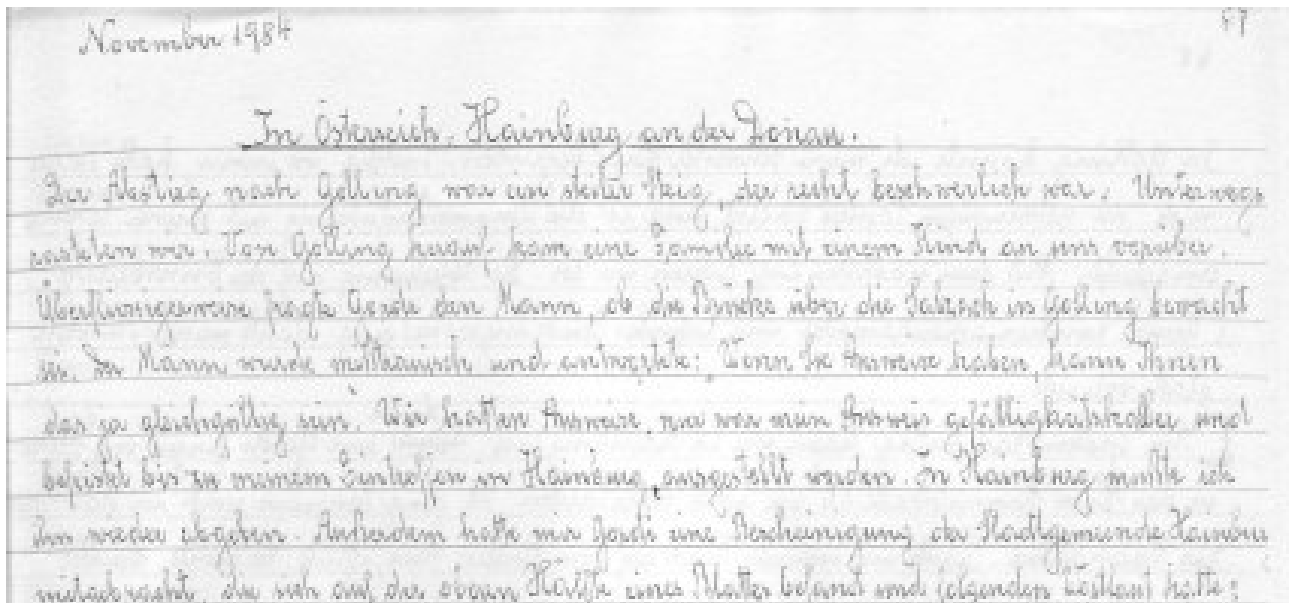 November 1984
In Österreich, Hainburg an der Donau.
Der Abstieg nach Golling war ein steiler Steig, der recht beschwerlich war. Unterwegs
rasteten wir. Von Golling herauf kam eine Familie mit einem Kind an uns vorüber.
Überflüssigerweise fragte Gerdi den Mann, ob die Brücke über die Salzach in Golling bewacht
sei. Der Mann wurde mißtrauisch und antwortete: „Wenn Sie Ausweise haben, kann Ihnen
das ja gleichgültig sein." Wir hatten Ausweise, nur war mein Ausweis gefälligkeitshalber und
befristet bis zu meinem Eintreffen in Hainburg, ausgestellt worden. In Hainburg mußte ich
ihn wieder abgeben. Außerdem hatte mir Gerdi eine Bescheinigung der Stadtgemeinde Hainburg
mitgebracht, die sich auf der oberen Hälfte eines Blattes befand und folgenden Wortlaut hatte: